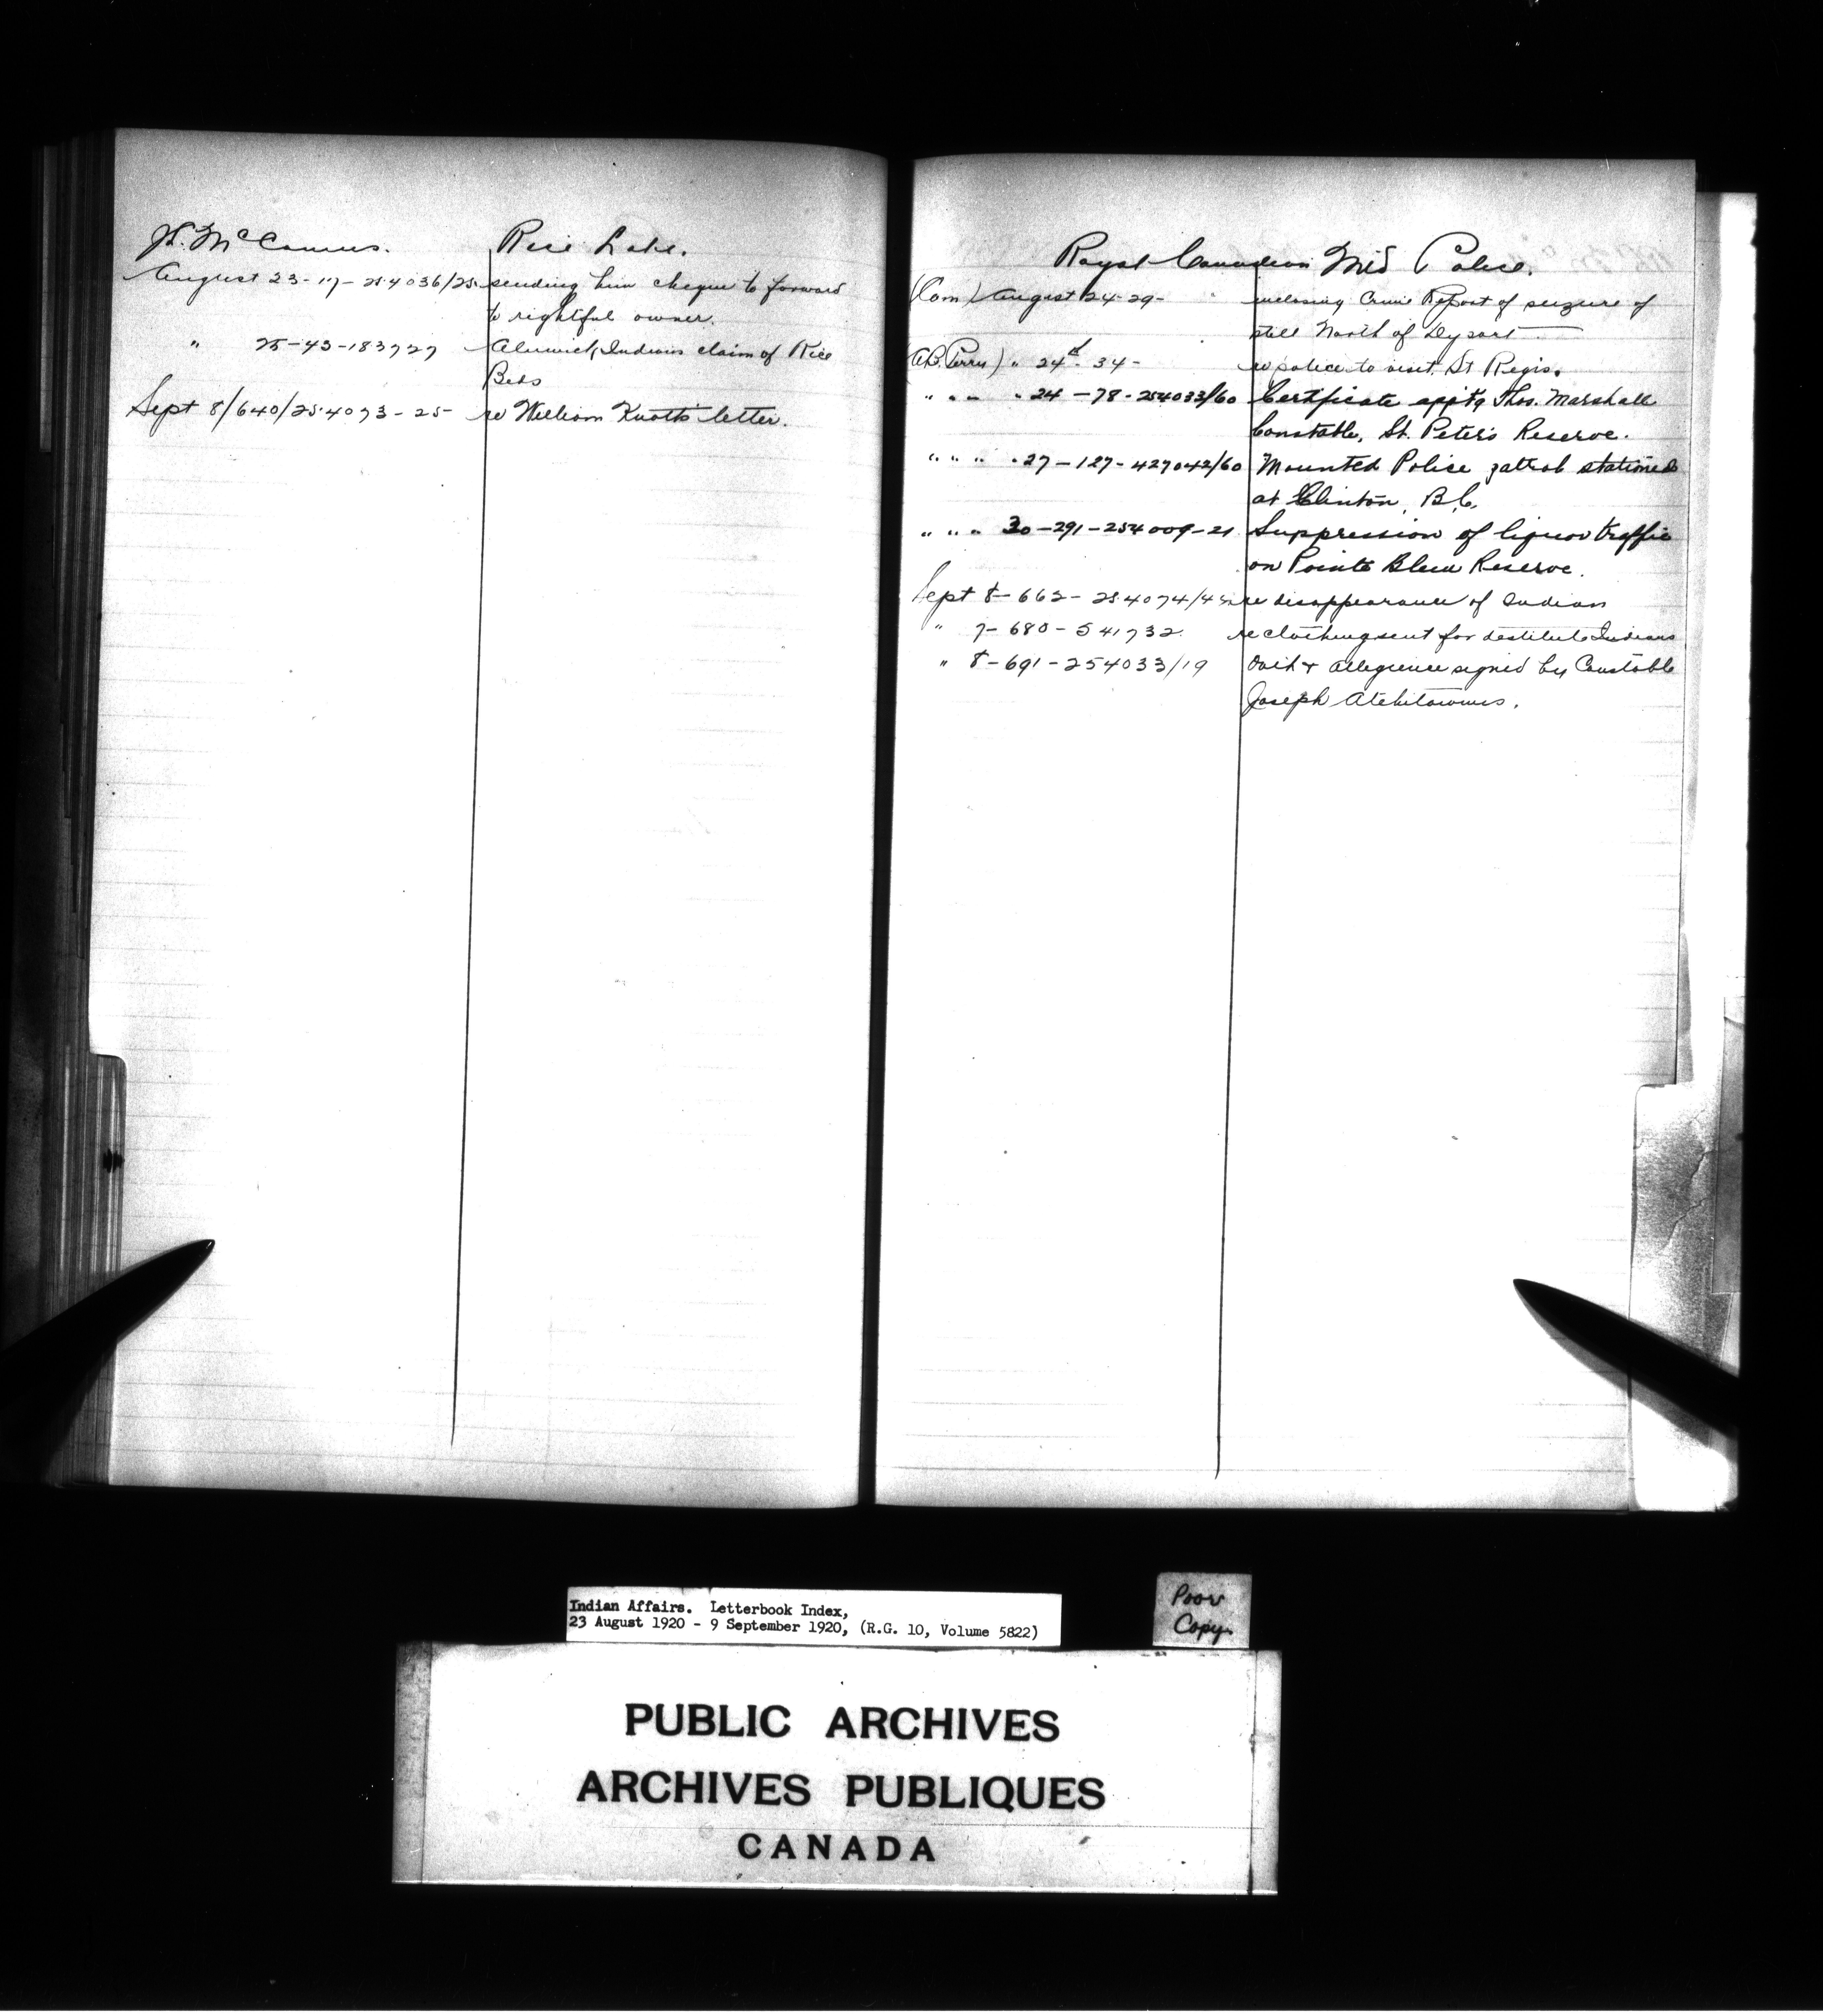 McCamus. Rice Lake.
August 23-17-254036/25 sending him cheque to forward
to rightful owner.
" 25-43-183727 Alnwick Indians claim of Rice
Beds
Sept 8/640/254073-25- re William Knott's letter.
Royal Canadian Mtd Police.
(Com) August 24-29- enclosing Crime Report of seizure of
still North of Dysart
(A.B. Perry) " 24th- 34- re police to visit St Regis.
" " " " 24-78-254033/60 Certificate appt'g Thos. Marshall
Constable, St. Peter's Reserve.
" " " " 27-127-427042/60 Mounted Police patrol stationed
at Clinton, B.C.
" " " 30-291-254009-21 Suppression of liquor traffic
on Pointe Bleue Reserve.
Sept 8-662-254074/ re disappearance of Indian
" 7-680-541732 re clothing sent for destitute Indians
" 8-691-254033/19 Oath & allegience signed by Constable
Joseph
Indian Affairs. Letterbook Index,
23 August 1920 - 9 September 1920, (R.G. 10, Volume 5822)
Poor
Copy.
PUBLIC ARCHIVES
ARCHIVES PUBLIQUES
CANADA